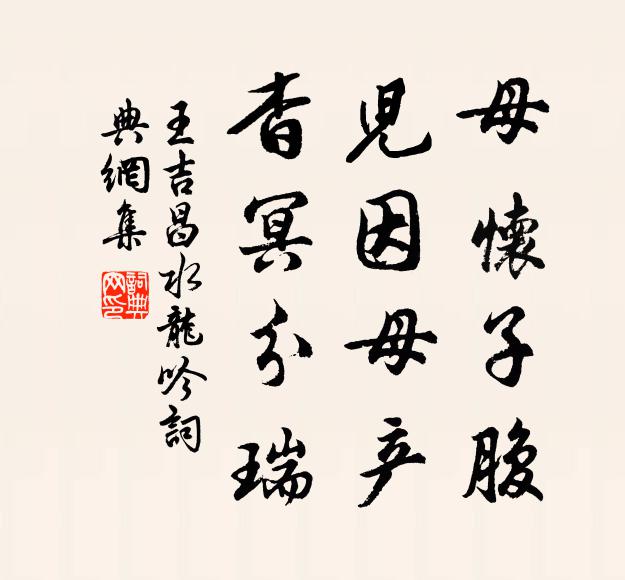 母懷子腹
兒因母产
杳冥分瑞
王吉昌水龍吟詞
典網集
詞典網印